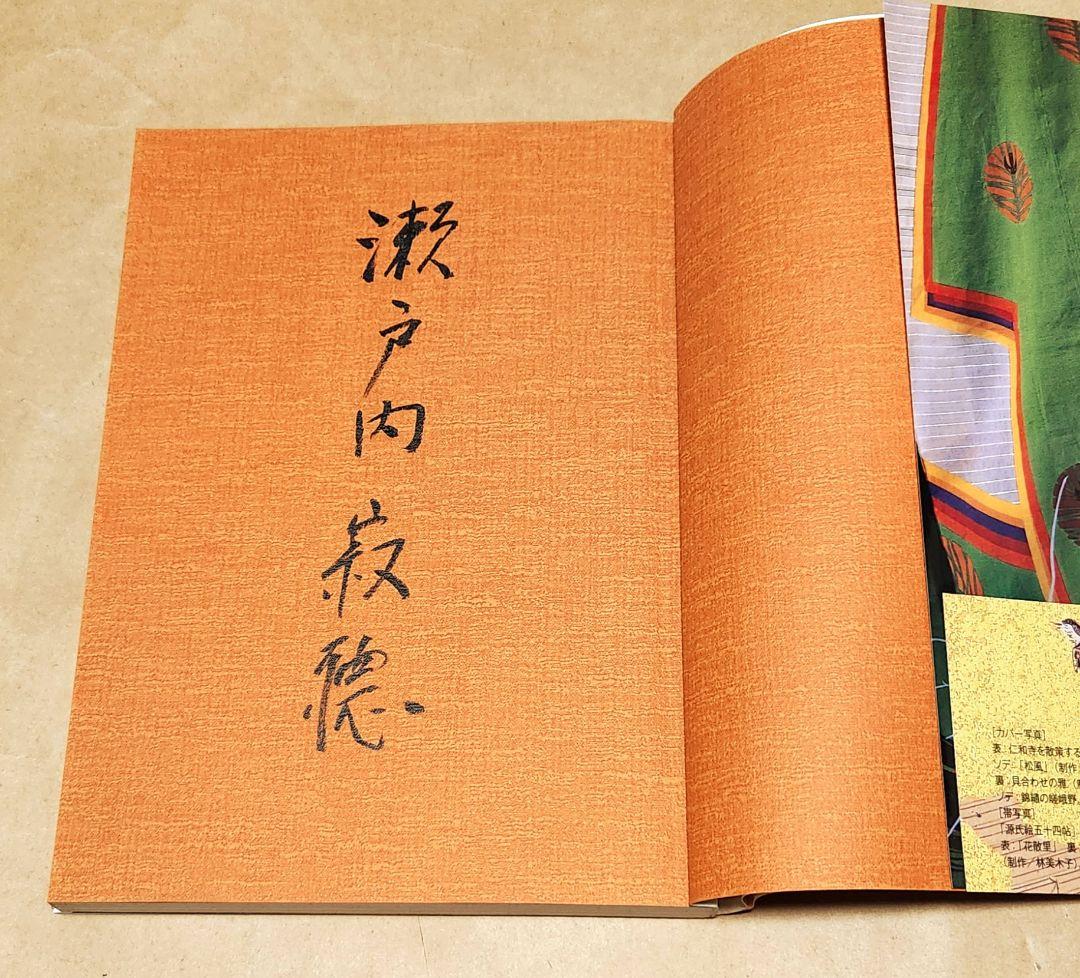 瀬戸内寂聴
[カバー写真]
表:仁和寺を散策する
ソデ:「松風」(制作
裏:貝合わせの雅
ソデ:錦繡の嵯峨野
[帯写真]
「源氏絵五十四帖」
表:「花散里」 裏
(制作/林美木子)